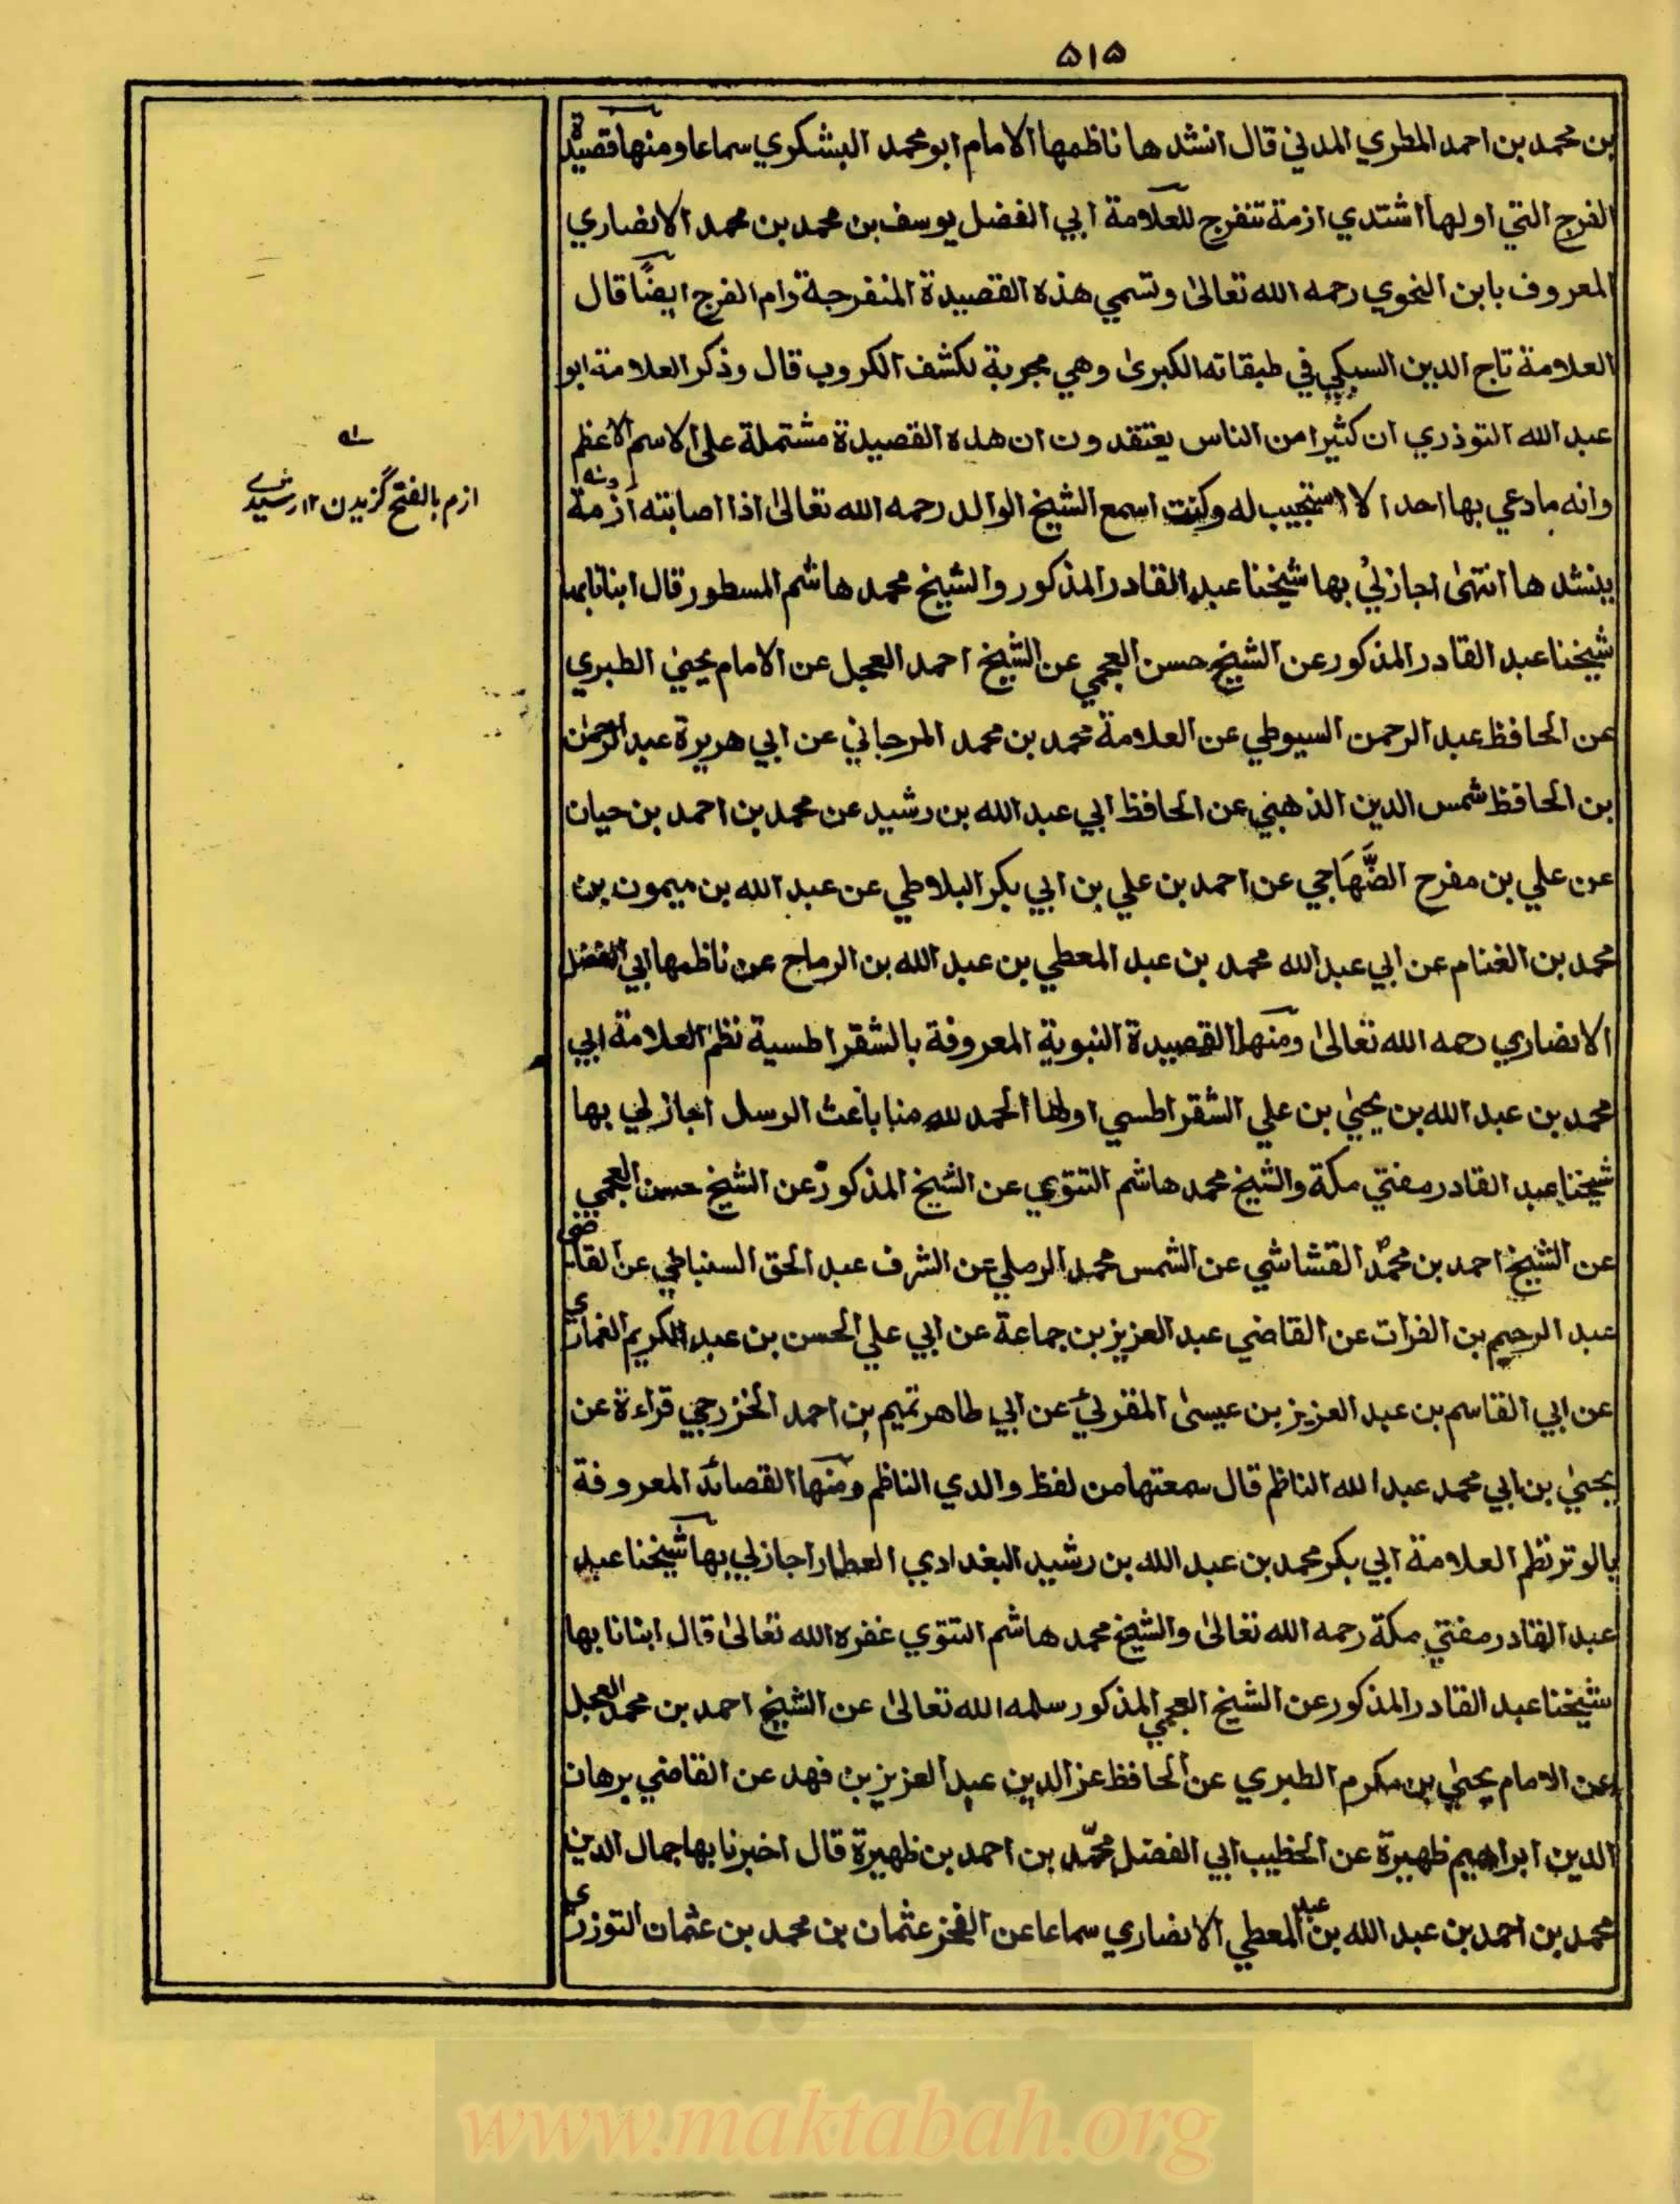 ۵۱۵
بن محمد بن احمد المطري المدني قال انشدها ناظمها الامام ابو محمد البشكري سماعا ومنها قصيدة
الفرج التي اولها اشتدي ازمة تنفرج للعلامة ابي الفضل يوسف بن محمد بن محمد الانصاري
المعروف بابن النحوي رحمه الله تعالىٰ وتسمي هذه القصيدة المنفرجة وام الفرج ايضًا قال
العلامة تاج الدين السبكي في طبقاته الكبرىٰ وهي مجربة لكشف الكروب قال وذكر العلامة ابو
عبد الله التوذري ان كثيرا من الناس يعتقدون ان هذه القصيدة مشتملة على الاسم الاعظم
وانه ما دعي بها احد الا استجيب له وكنت اسمع الشيخ الوالد رحمه الله تعالىٰ اذا اصابته ازمة
ينشدها انتهىٰ اجازني بها شيخنا عبد القادر المذكور والشيخ محمد هاشم المسطور قال انبانا بها
شيخنا عبد القادر المذكور عن الشيخ حسن العجمي عن الشيخ احمد العجل عن الامام يحيىٰ الطبري
عن الحافظ عبد الرحمن السيوطي عن العلامة محمد بن محمد المرجاني عن ابي هريرة عبد الرحمٰن
بن الحافظ شمس الدين الذهبي عن الحافظ ابي عبد الله بن رشيد عن محمد بن احمد بن حيان
عن علي بن مفرح الضَّهَاجي عن احمد بن علي بن ابي بكر البلاطي عن عبد الله بن ميمون بن
محمد بن الغنام عن ابي عبد الله محمد بن عبد المعطي بن عبد الله بن الرماح عن ناظمها ابي الفضل
الانصاري رحمه الله تعالىٰ ومنها القصيدة النبوية المعروفة بالشقراطسية نظم العلامة ابي
محمد بن عبد الله بن يحيىٰ بن علي الشقراطسي اولها الحمد لله منا باعث الرسل اجازلي بها
شيخنا عبد القادر مفتي مكة والشيخ محمد هاشم التتوي عن الشيخ المذكور عن الشيخ حسن العجمي
عن الشيخ احمد بن محمد القشاشي عن الشمس محمد الرملي عن الشرف عبد الحق السنباطي عن القاضي
عبد الرحيم بن الفرات عن القاضي عبد العزيز بن جماعة عن ابي علي الحسن بن عبد الكريم الغماري
عن ابي القاسم بن عبد العزيز بن عيسىٰ المقرئي عن ابي طاهر تميم بن احمد الخزرجي قراءة عن
يحيىٰ بن ابي محمد عبد الله الناظم قال سمعتها من لفظ والدي الناظم ومنها القصائد المعروفة
بالوتر نظم العلامة ابي بكر محمد بن عبد الله بن رشيد البغدادي العطار اجازلي بها شيخنا عبد
عبد القادر مفتي مكة رحمه الله تعالىٰ والشيخ محمد هاشم التتوي غفره الله تعالىٰ قال انبانا بها
شيخنا عبد القادر المذكور عن الشيخ العجمي المذكور سلمه الله تعالىٰ عن الشيخ احمد بن محمد العجل
عن الامام يحيىٰ بن مكرم الطبري عن الحافظ عز الدين عبد العزيز بن فهد عن القاضي برهان
الدين ابراهيم ظهيرة عن الخطيب ابي الفضل محمّد بن احمد بن ظهيرة قال اخبرنا بها جمال الدين
محمد بن احمد بن عبد الله بن عبد المعطي الانصاري سماعا عن الفخر عثمان بن محمد بن عثمان التوزري
ازم بالفتح گزیدن ۱۲ رشیدی
www.maktabah.org